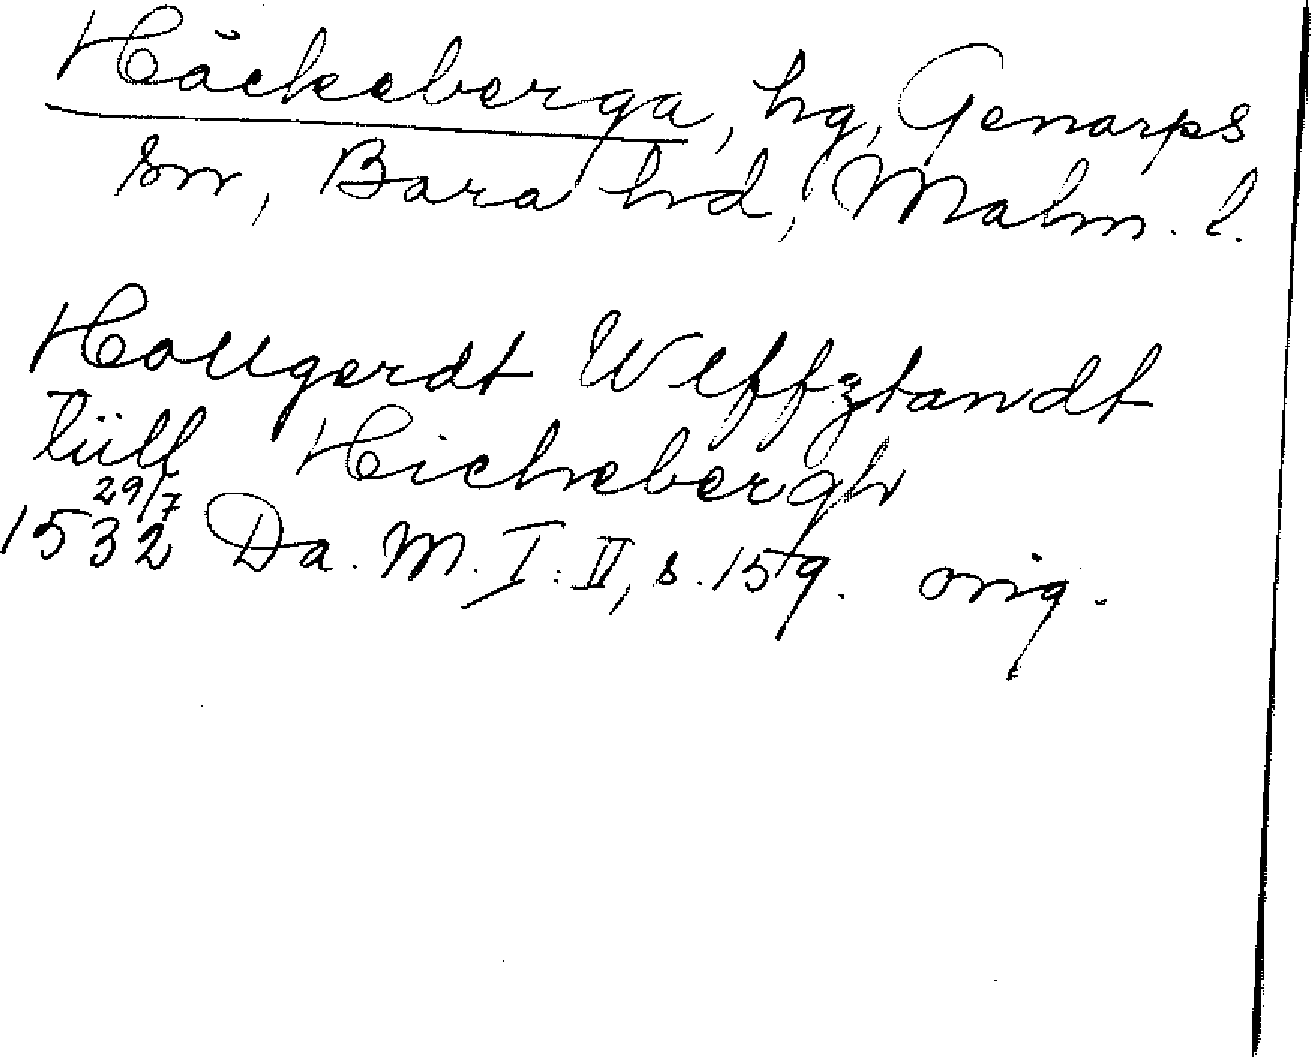 Häckeberga, hg, Genarps
sn, Bara hd, Malm. l.
Hollgerdt Wlffztandt
tiill Hickebergh
29/7
1532 Da. M. I: II, s. 159. orig.